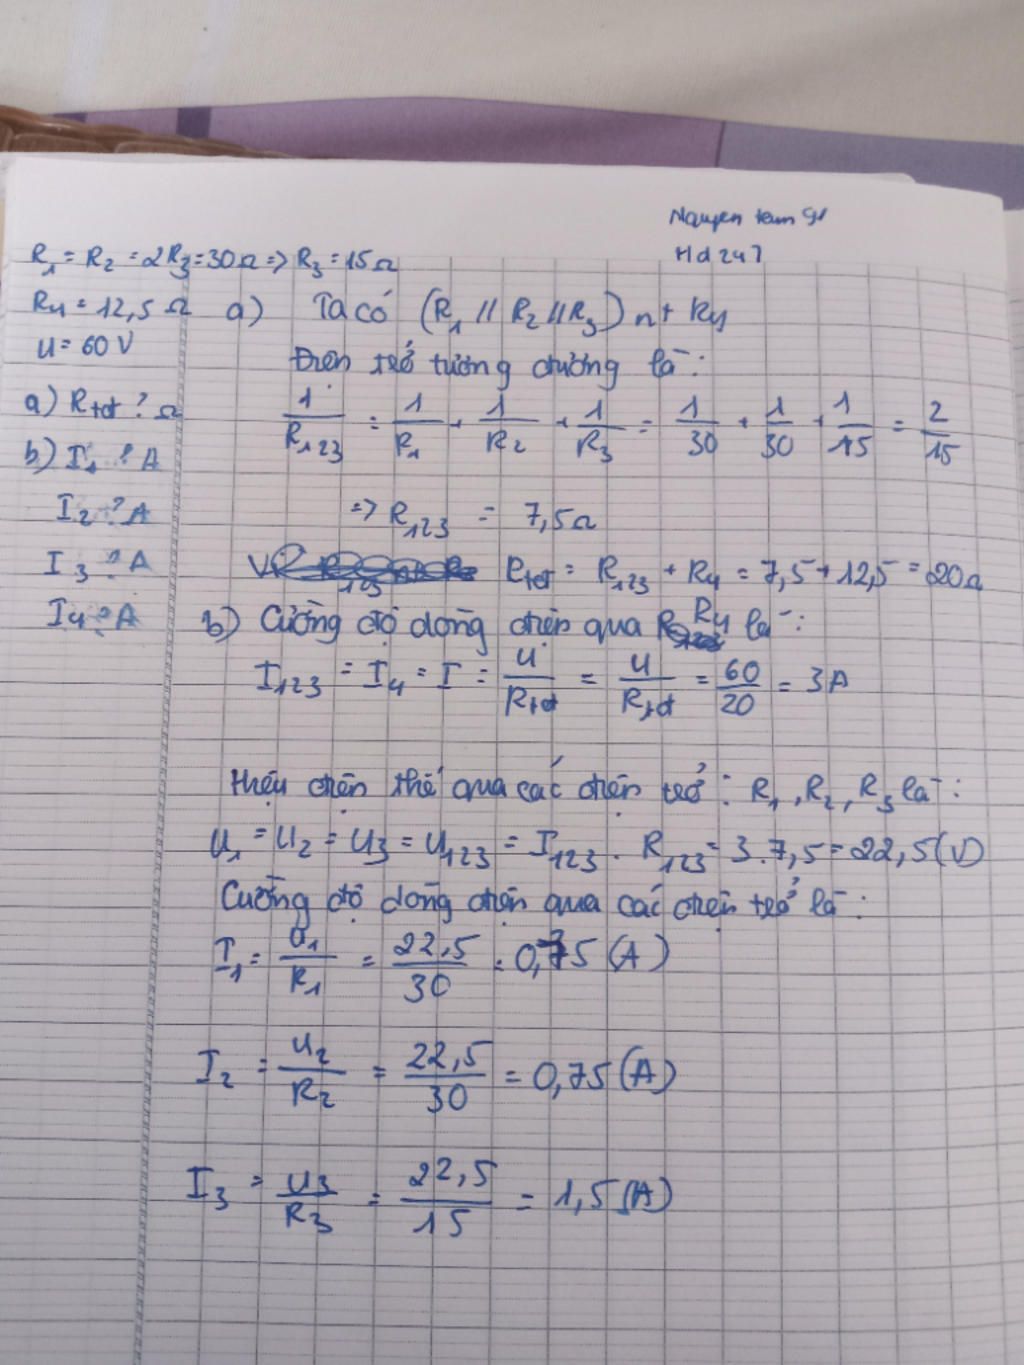 Nguyen
Hd247
R₁ = R₂ = 2R₃ = 30Ω => R₃ = 15Ω
R₄ = 12,5 Ω
U = 60 V
a) Rtđ ? Ω
b) I₁ ? A
I₂ ? A
I₃ ? A
I₄ ? A
a) Ta có (R₁ // R₂ // R₃) nt R₄
Điện trở tương đương là:
1/R₁₂₃ = 1/R₁ + 1/R₂ + 1/R₃ = 1/30 + 1/30 + 1/15 = 2/15
=> R₁₂₃ = 7,5Ω
Rtđ = R₁₂₃ + R₄ = 7,5 + 12,5 = 20Ω
b) Cường độ dòng điện qua R₄ là:
I₁₂₃ = I₄ = I = U/Rtđ = U/Rtđ = 60/20 = 3A
Hiệu điện thế qua các điện trở: R₁, R₂, R₃ là:
U₁ = U₂ = U₃ = U₁₂₃ = I₁₂₃ . R₁₂₃ = 3.7,5 = 22,5(V)
Cường độ dòng điện qua các điện trở là:
I₁ = U₁/R₁ = 22,5/30 = 0,75 (A)
I₂ = U₂/R₂ = 22,5/30 = 0,75 (A)
I₃ = U₃/R₃ = 22,5/15 = 1,5 (A)